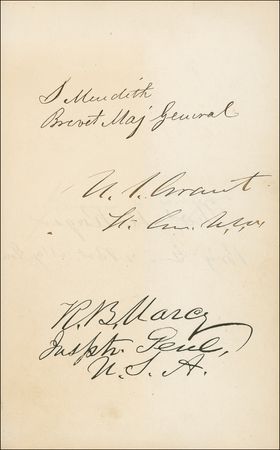 S Meredith
Brevet Maj General
U. S. Grant
Lt. Gn. U.S.A.
R. B. Marcy
Insptr. Genl,
U. S. A.